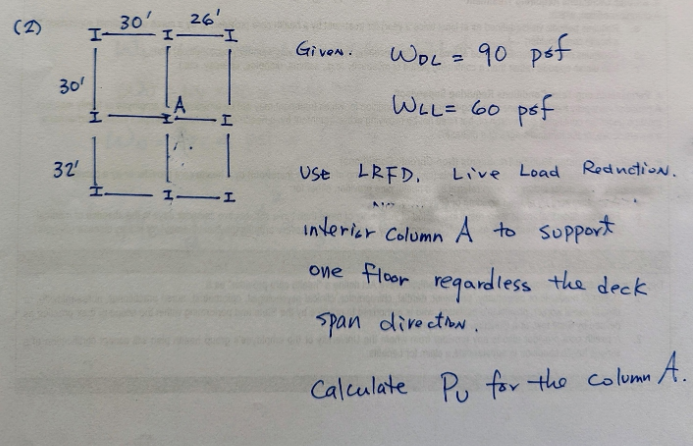 (2)
30' 26'
I I I
30'
A
I I I
32'
I I I
Given. WDL = 90 psf
WLL= 60 psf
Use LRFD. Live Load Reduction.
interior Column A to support
one floor regardless the deck
span direction.
Calculate PU for the column A.